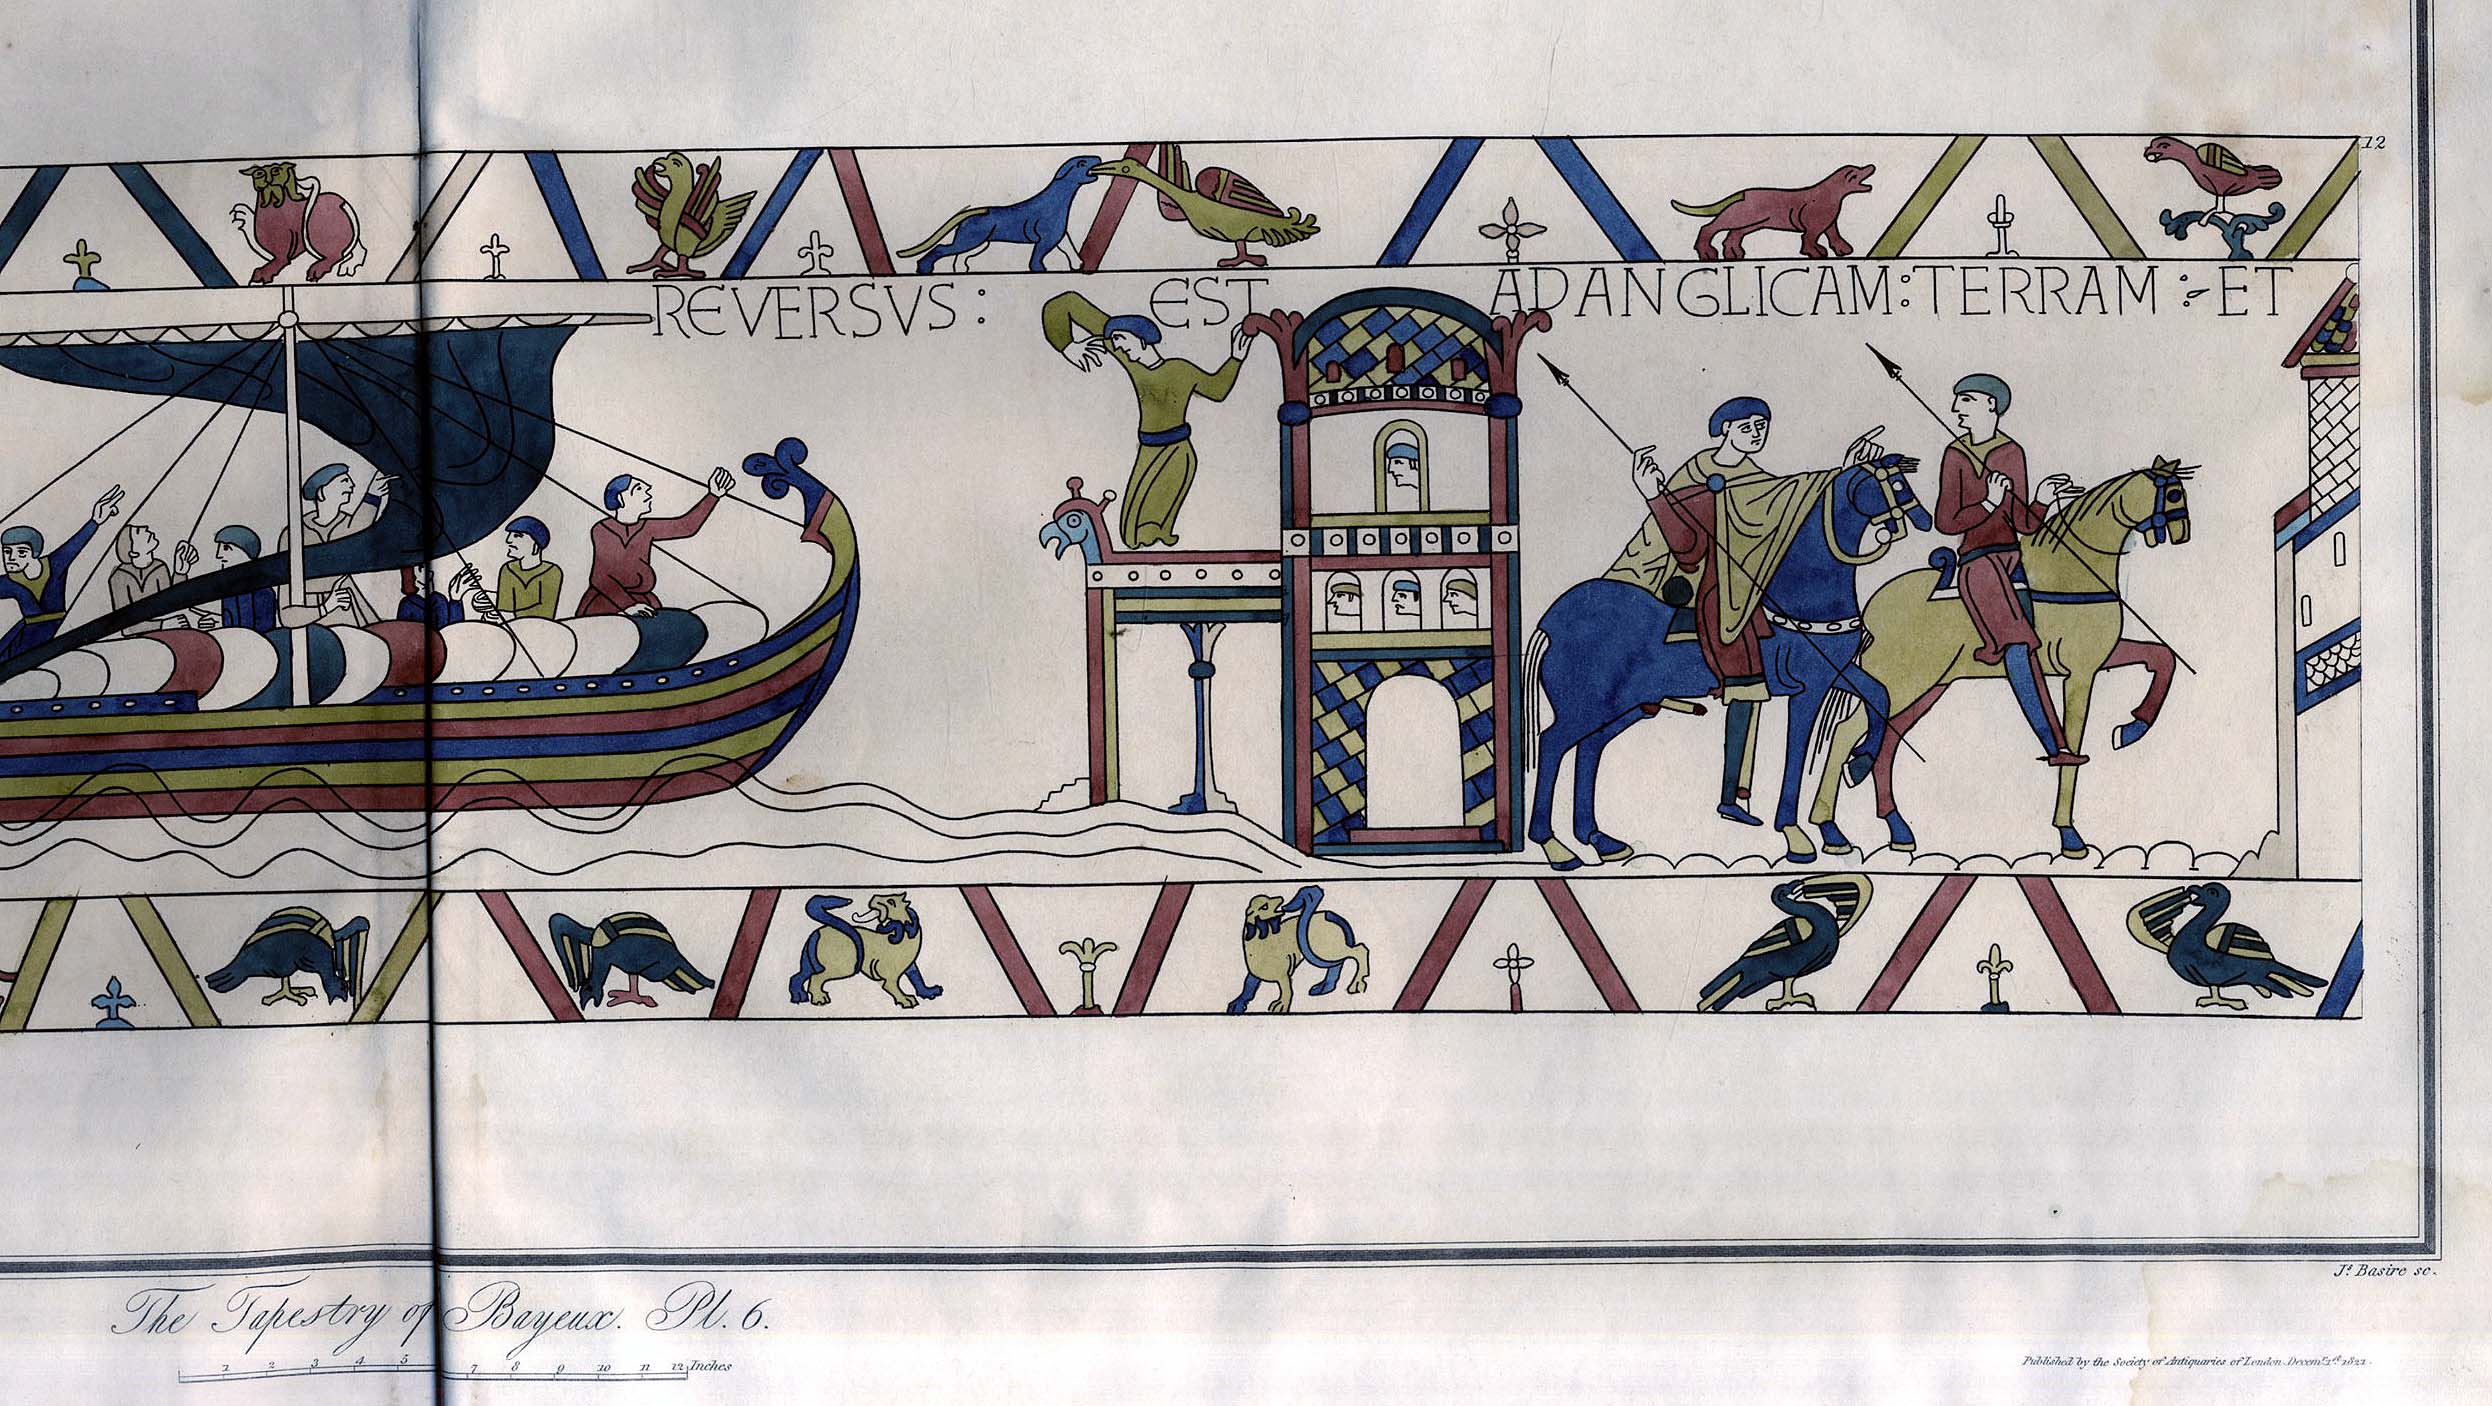 12
REVERSVS : EST AD ANGLICAM : TERRAM : ET
Js. Basire sc.
The Tapestry of Bayeux. Pl. 6.
1 2 3 4 5 7 8 9 10 11 12 Inches
Published by the Society of Antiquaries of London Decemr. 1st 1821.